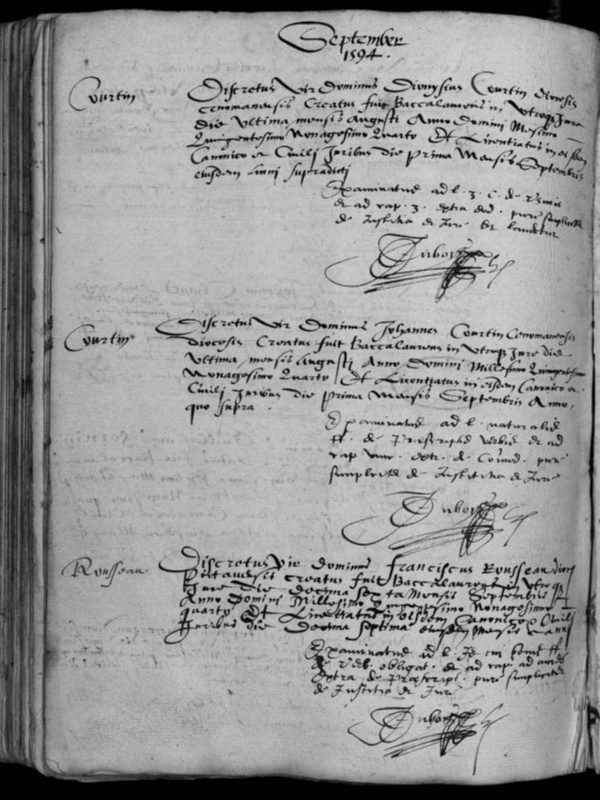 September
1594.
Courtin
Discretus vir Dominus Dionysius Courtin diocesis
cenomanensis Creatus fuit Baccalaureus in Utroq Jure
die Ultima mensis Augusti Anno Domini Mesimo
Quingentesimo Nonagesimo Quarto Et Licentiatus in
Canonico et Civili Juribus die Prima Mensis Septembris
eiusdem anni supradicti
Examinatus ad l. 3. C. de
et ad cap. 3. extra pure simpliciter
de Justitia et Jure
Courtin
Discretus vir Dominus Johannes Courtin Cenomanensis
diocesis Creatus fuit Baccalaureus in Utroq Jure die
Ultima mensis Augusti Anno Domini Millesimo Quingentesimo
Nonagesimo Quarto Et Licentiatus in eisdem Canonico et
Civili Juribus Die Prima Mensis Septembris Anno.
quo supra.
Examinatus ad l. naturalis
ff. de Praescriptis verbis et ad
cap extr. de pure
simpliciter de Justitia et Jure
Rousseau
Discretus vir dominus Franciscus Rousseau
Pictaviensis creatus fuit Baccalaureus in Utroq
Jure die decima sexta Mensis Septembris
Anno Domini Millesimo Quingentesimo Nonagesimo
quarto Et Licentiatus in eisdem Canonico et Civili
Juribus die decima septima eiusdem Mensis
Examinatus ad l. ff.
de obligat. et ad cap. ad
extra de Praescript. pure simpliciter
de Justitia et Jure